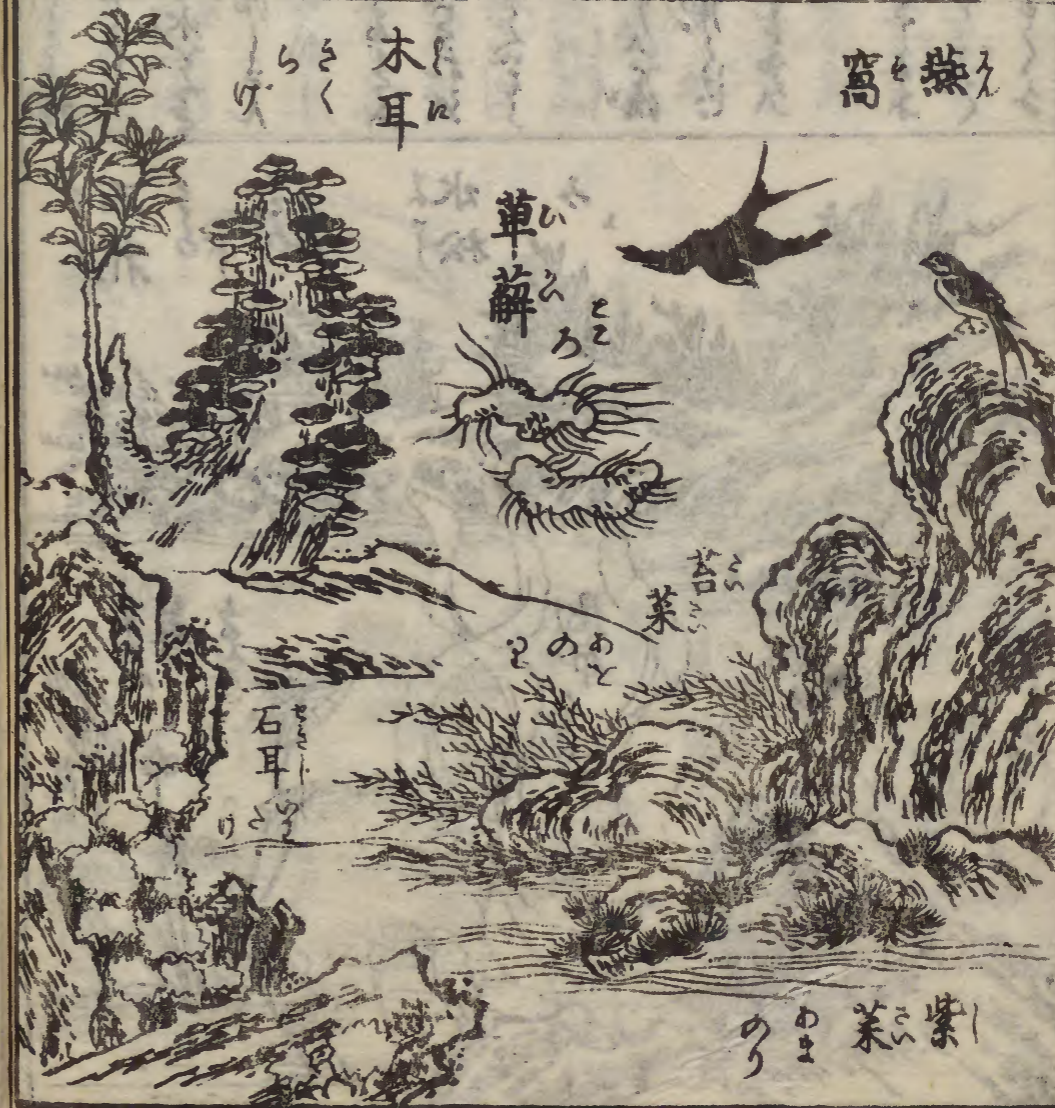 燕窩
えん
木耳
きくらげ
萆薢
ひかい
ところ
苔菜
たいさい
あをのり
石耳
いはたけ
紫菜
しさい
あまのり